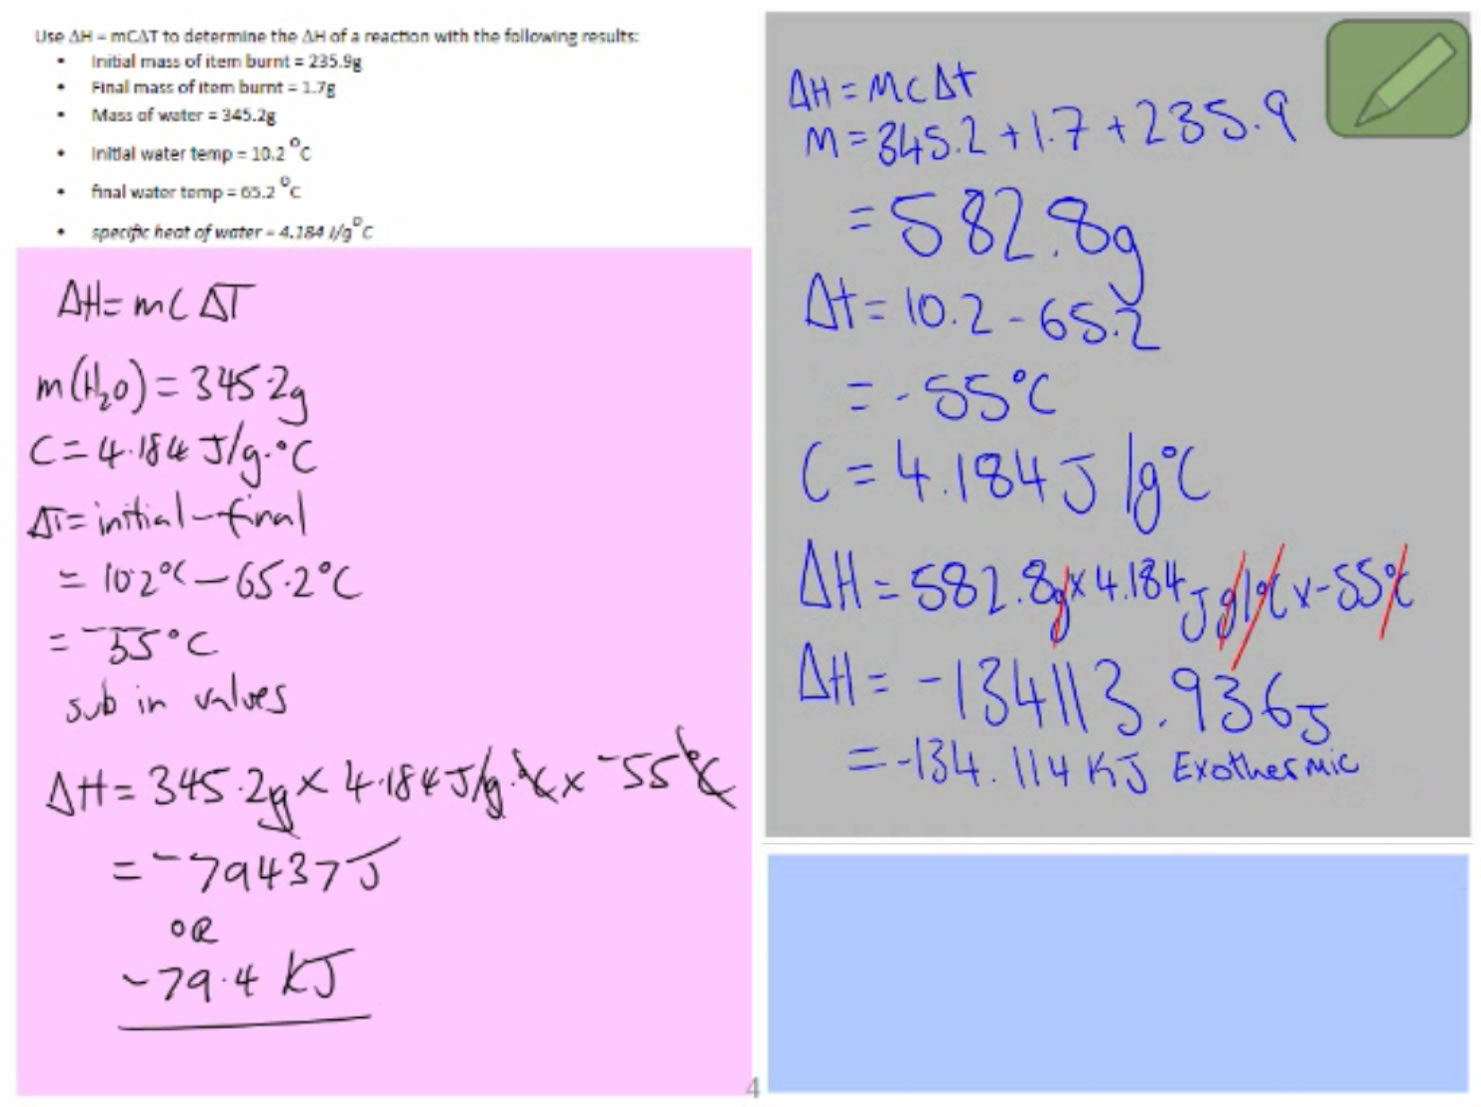 Use ΔH = mCΔT to determine the ΔH of a reaction with the following results:
• Initial mass of item burnt = 235.9g
• Final mass of item burnt = 1.7g
• Mass of water = 345.2g
• Initial water temp = 10.2 °C
• final water temp = 65.2 °C
• specific heat of water = 4.184 J/g°C
ΔH = mC ΔT
m(H₂O) = 345.2g
C = 4.184 J/g.°C
ΔT = initial - final
= 10.2°C - 65.2°C
= -55°C
sub in values
ΔH = 345.2g x 4.184 J/g.°C x -55°C
= -79437J
OR
-79.4 KJ
ΔH = MCΔt
M = 345.2 + 1.7 + 235.9
= 582.8g
Δt = 10.2 - 65.2
= -55°C
C = 4.184J /g°C
ΔH = 582.8g x 4.184J g/°C x -55°C
ΔH = -134113.936J
= -134.114KJ Exothermic
4